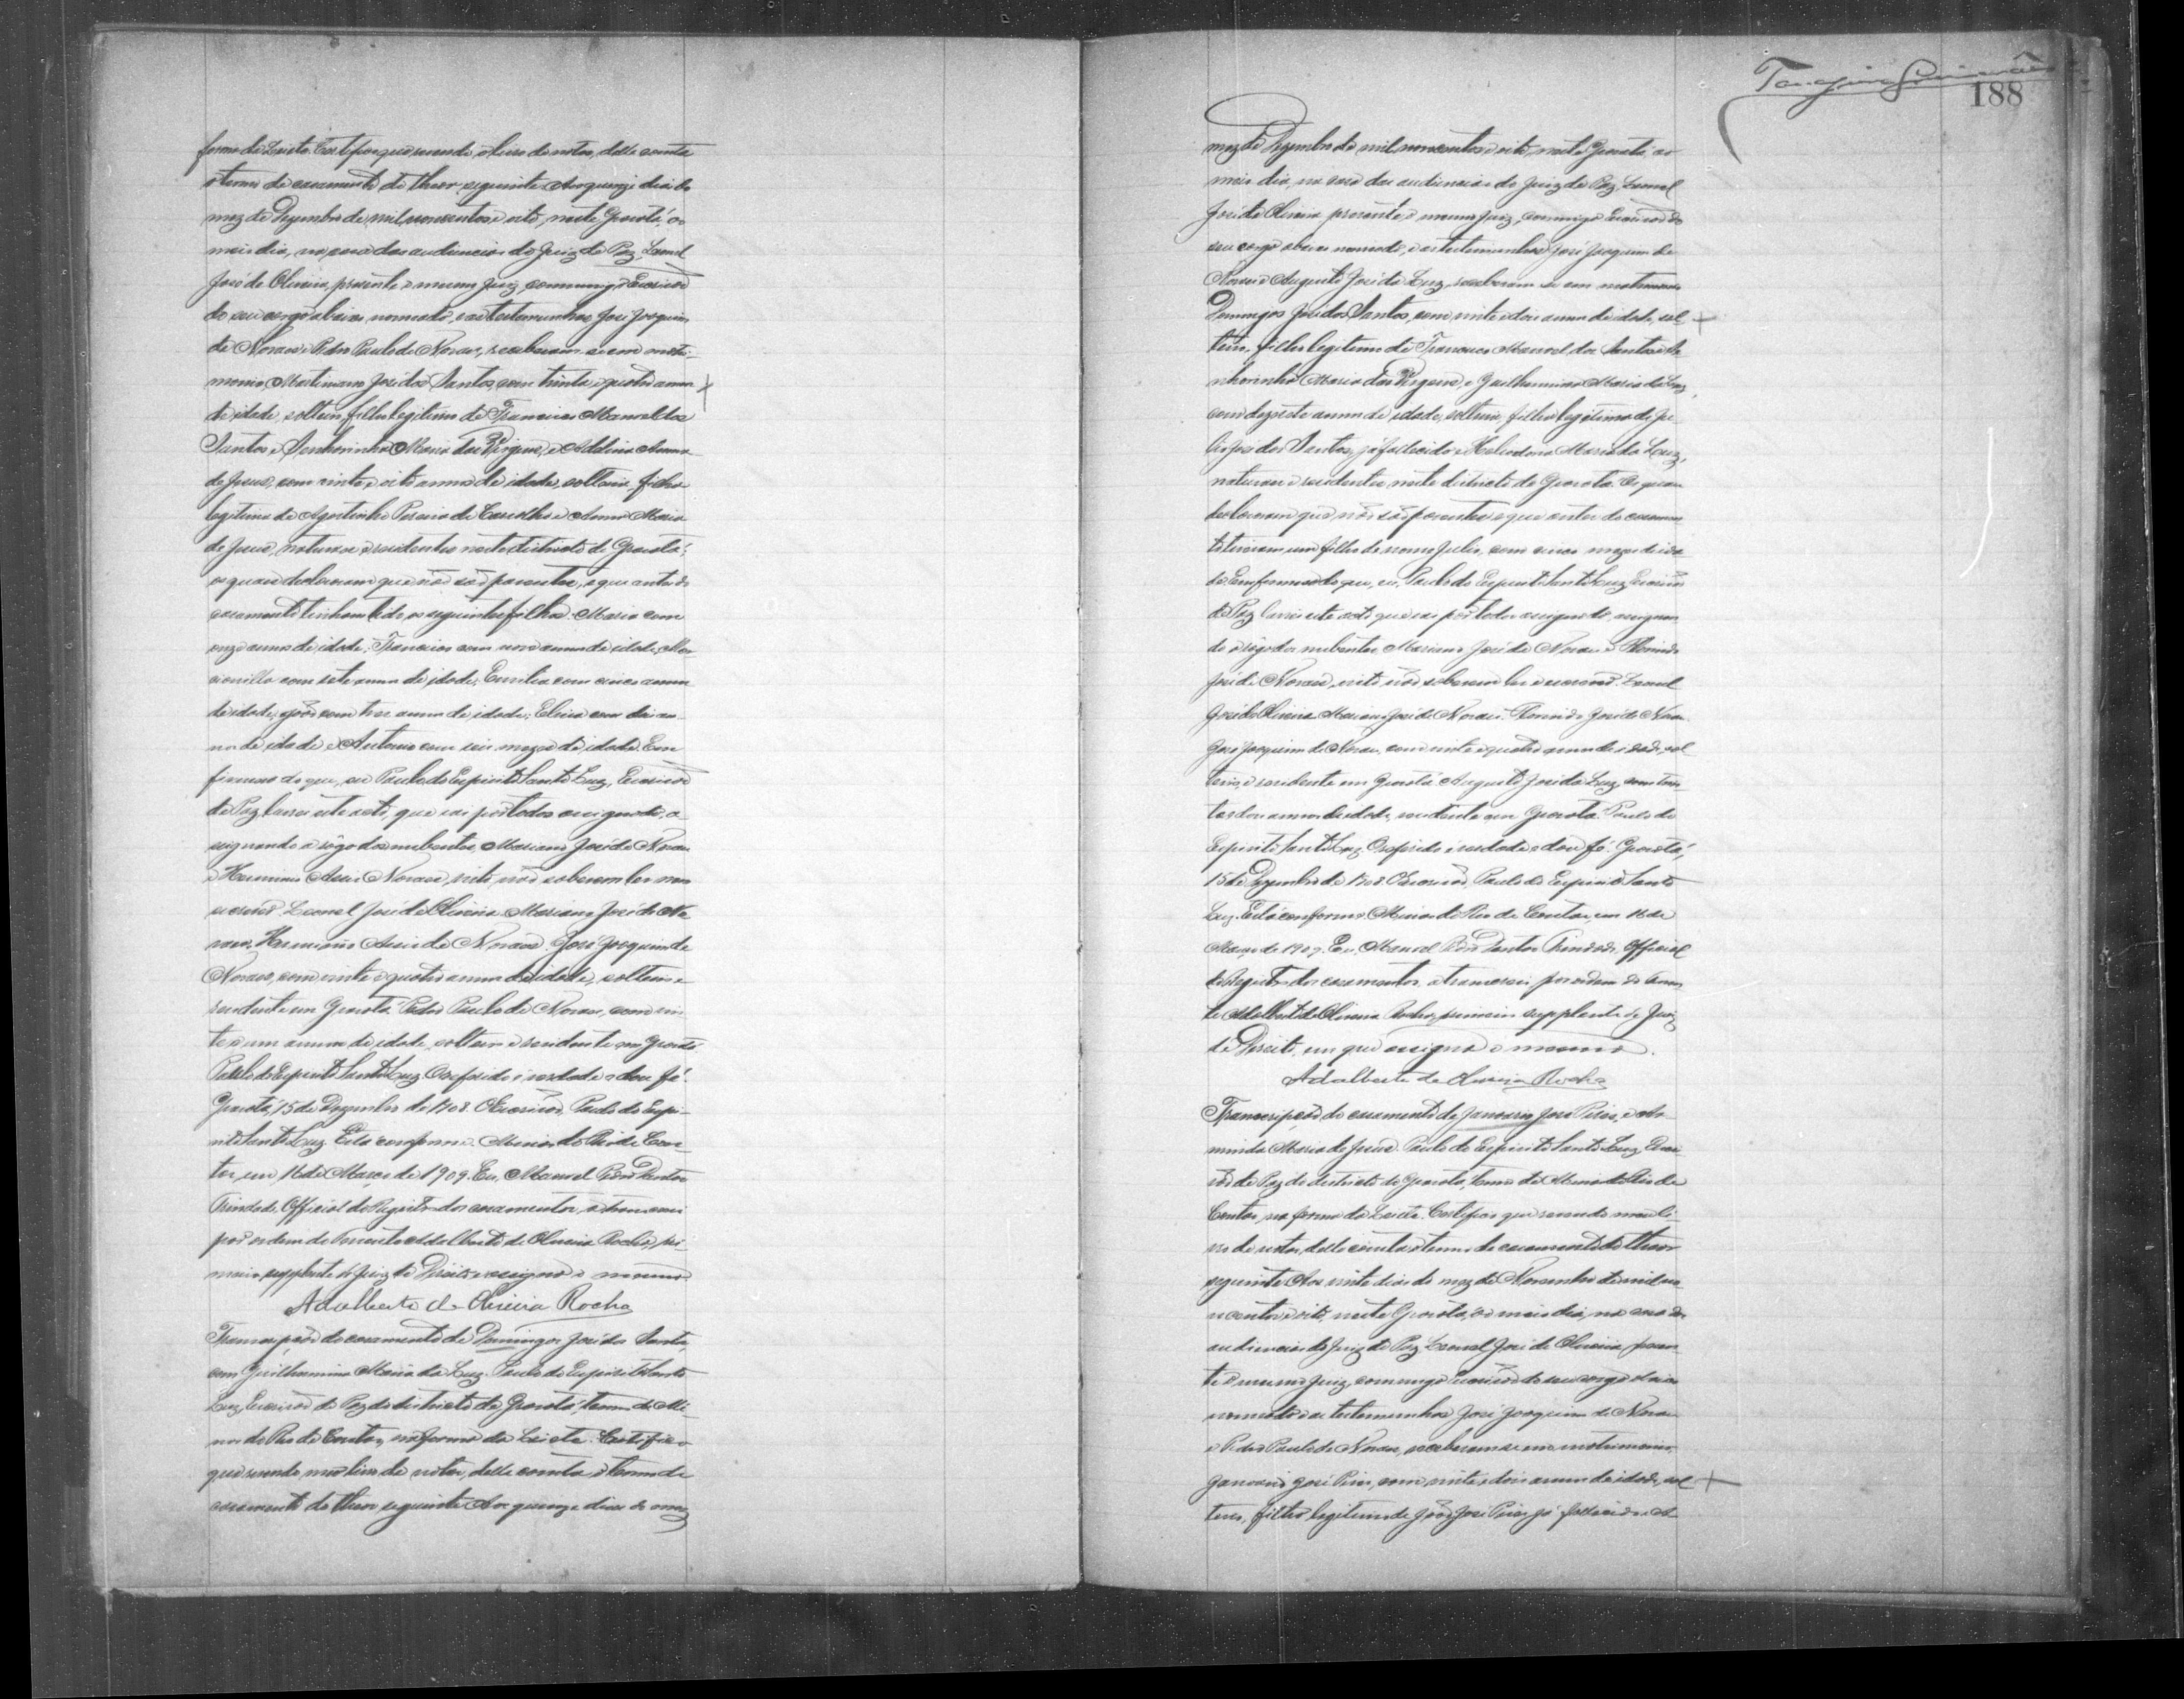 forma da Lei etc. Certifico que revendo o livro de notas, delle consta
o termo de casamento do theor seguinte. Aos quinze dias do
mez de Dezembro de mil novecentos e oito, neste Gravatá, ao
meio dia, na casa das audiencias do Juiz de Paz, Leonel
José de Oliveira, presente o mesmo Juiz, commigo Escrivão
do seu cargo abaixo nomeado, e as testemunhas José Joaquim
de Novaes e Pedro Paulo de Novaes, receberam-se em matri-
monio Martiniano José dos Santos, com trinta e quatro annos
de idade, solteiro, filho legitimo de Francisco Manoel dos
Santos e Senhorinha Maria das Virgens, e Addina Anna
de Jesus, com vinte e oito annos de idade, solteira, filha
legitima de Agostinho Pereira de Carvalho e Anna Maria
de Jesus, naturaes e residentes neste districto de Gravatá;
os quaes declararam que não são parentes, e que antes do
casamento tinham tido os seguintes filhos: Maria com
onze annos de idade; Francisco com nove annos de idade;
com sete annos de idade; Emilia com cinco annos
de idade; João com tres annos de idade; Elisia com dois an-
nos de idade e Antonio com seis mezes de idade. Em
firmeza do que, eu Paulo do Espirito Santo Luz, Escrivão
de Paz lavrei este acto, que vai por todos assignado, a-
ssignando a rôgo dos nubentes, Mariano José de Novaes
e Herminio Assis Novaes, visto não saberem ler nem
escrever. Leonel José de Oliveira. Mariano José de No-
vaes. Herminio Assis de Novaes. José Joaquim de
Novaes, com vinte e quatro annos de idade, solteiro e
residente em Gravatá. Pedro Paulo de Novaes, com vin-
te e um annos de idade, solteiro e residente em Gravatá.
Paulo do Espirito Santo Luz. O referido é verdade e dou fé.
Gravatá, 15 de Dezembro de 1908. O Escrivão, Paulo do Espi-
rito Santo Luz. Está conforme. Minas do Rio de Con-
tas, em 16 de Março de 1909. Eu, Manoel Pedro Santos
Trindade, Official do Registro dos casamentos, o transcrevi
por ordem do Tenente Adalberto de Oliveira Rocha, pri-
meiro supplente do Juiz de Direito e assigna o mesmo.
Adalberto de Oliveira Rocha
Transcripção do casamento de Domingos José dos Santos,
com Guilhermina Maria da Luz. Paulo do Espirito Santo
Luz, Escrivão de Paz do districto de Gravatá, termo de Mi-
nas do Rio de Contas, na forma da Lei etc. Certifico
que revendo meu livro de notas, delle consta o termo de
casamento do theor seguinte. Aos quinze dias do mez
188
mez de Dezembro de mil novecentos e oito, neste Gravatá ao
meio dia, na casa das audiencias do Juiz de Paz, Leonel
José de Oliveira, presente o mesmo Juiz, commigo Escrivão do
seu cargo abaixo nomeado, e as testemunhas José Joaquim de
Novaes e Augusto José da Luz, receberam-se em matrimonio
Domingos José dos Santos, com vinte e dois annos de idade, sol-
teiro, filho legitimo de Francisco Manoel dos Santos e Se-
nhorinha Maria das Virgens, e Guilhermina Maria da Luz,
com dezesete annos de idade, solteira, filha legitima de
José dos Santos, já fallecido e Heliodora Maria da Luz,
naturaes e residentes neste districto de Gravatá. Os quaes
declararam que não são parentes e que antes do casamen-
to tiveram um filho de nome Julio, com cinco mezes de ida-
de. Em firmeza do que, eu, Paulo do Espirito Santo Luz, Escrivão
de Paz lavrei este acto, que vai por todos assignado, assignan-
do a rôgo dos nubentes Mariano José de Novaes e Florindo
José de Novaes, visto não saberem ler e escrever. Leonel
José de Oliveira. Mariano José de Novaes. Florindo José de Novaes.
José Joaquim de Novaes, com vinte e quatro annos de idade, sol-
teiro, e residente em Gravatá. Augusto José da Luz, com trin-
ta e dois annos de idade, residente em Gravatá. Paulo do
Espirito Santo Luz. O referido é verdade e dou fé. Gravatá,
15 de Dezembro de 1908. O Escrivão, Paulo do Espirito Santo
Luz. Está conforme. Minas do Rio de Contas, em 16 de
Março de 1909. Eu, Manoel Pedro Santos Trindade, Official
do Registro dos casamentos, o transcrevi por ordem do Tenen-
te Adalberto de Oliveira Rocha, primeiro supplente do Juiz
de Direito, em que assigna o mesmo.
Adalberto de Oliveira Rocha
Transcripção do casamento de Januario José Pires, e Ar-
minda Maria de Jesus. Paulo do Espirito Santo Luz, Escri-
vão de Paz do districto de Gravatá, termo de Minas do Rio de
Contas, na forma da Lei etc. Certifico que revendo meu li-
vro de notas, delle consta o termo de casamento do theor
seguinte. Aos vinte dias do mez de Novembro de mil no-
vecentos e oito, neste Gravatá, ao meio dia, na casa das
audiencias do Juiz de Paz Leonel José de Oliveira, presen-
te o mesmo Juiz, commigo Escrivão do seu cargo abaixo
nomeado e as testemunhas José Joaquim de Novaes
e Pedro Paulo de Novaes, receberam-se em matrimonio,
Januario José Pires, com vinte e dois annos de idade, sol-
teiro, filho legitimo de João José Pires, já fallecido e A-